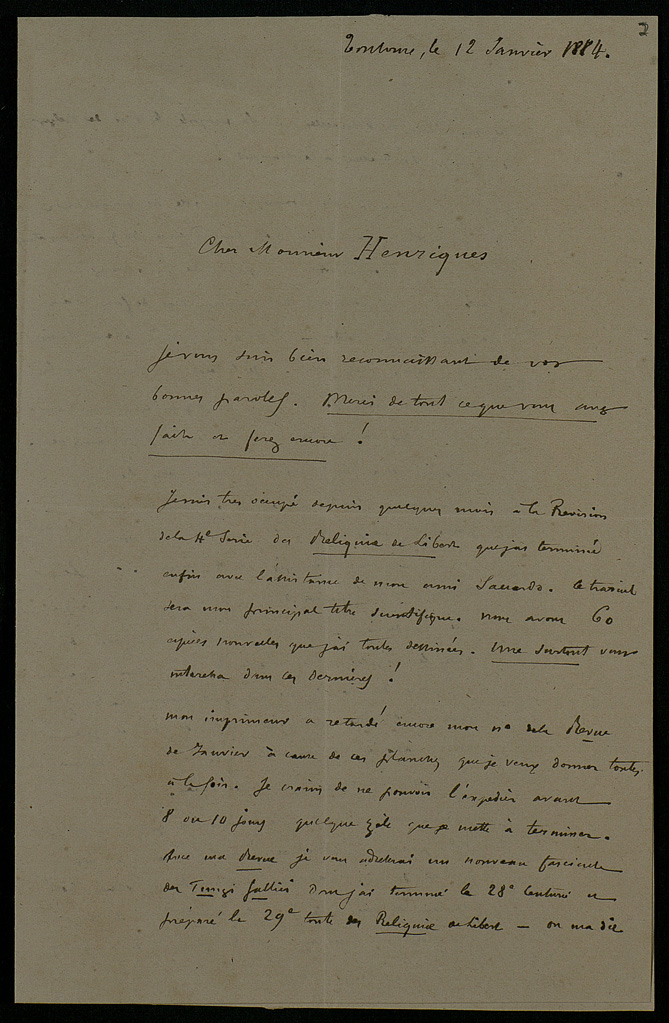 2
Toulouse, le 12 Janvier 1884.
Cher Monsieur Henriques
Je vous suis bien reconnaissant de vos
bonnes paroles. Merci de tout ce que vous avez
fait et ferez encore !
Je suis tres occupé depuis quelques mois à la Revision
de la 4e Serie des Reliquiæ de Libert que j'ai terminée
enfin avec l'assistance de mon ami Saccardo. Ce travail
sera mon principal titre scientifique. Nous avons 60
espèces nouvelles que j'ai toutes dessinées. Une surtout vous
interessera dans ces dernières !
Mon imprimeur a retardé encore mon no de la Revue
de Janvier à cause de ces planches que je veux donner toutes
à la fois. Je crains de ne pouvoir l'expedier avant
8 ou 10 jours quelque zèle que je mette à terminer.
Avec ma Revue je vous adresserai un nouveau fascicule
des Fungi Gallici dont j'ai terminé la 28e Centurie et
préparé la 29e toute des Reliquiæ de Libert — on m'a dit